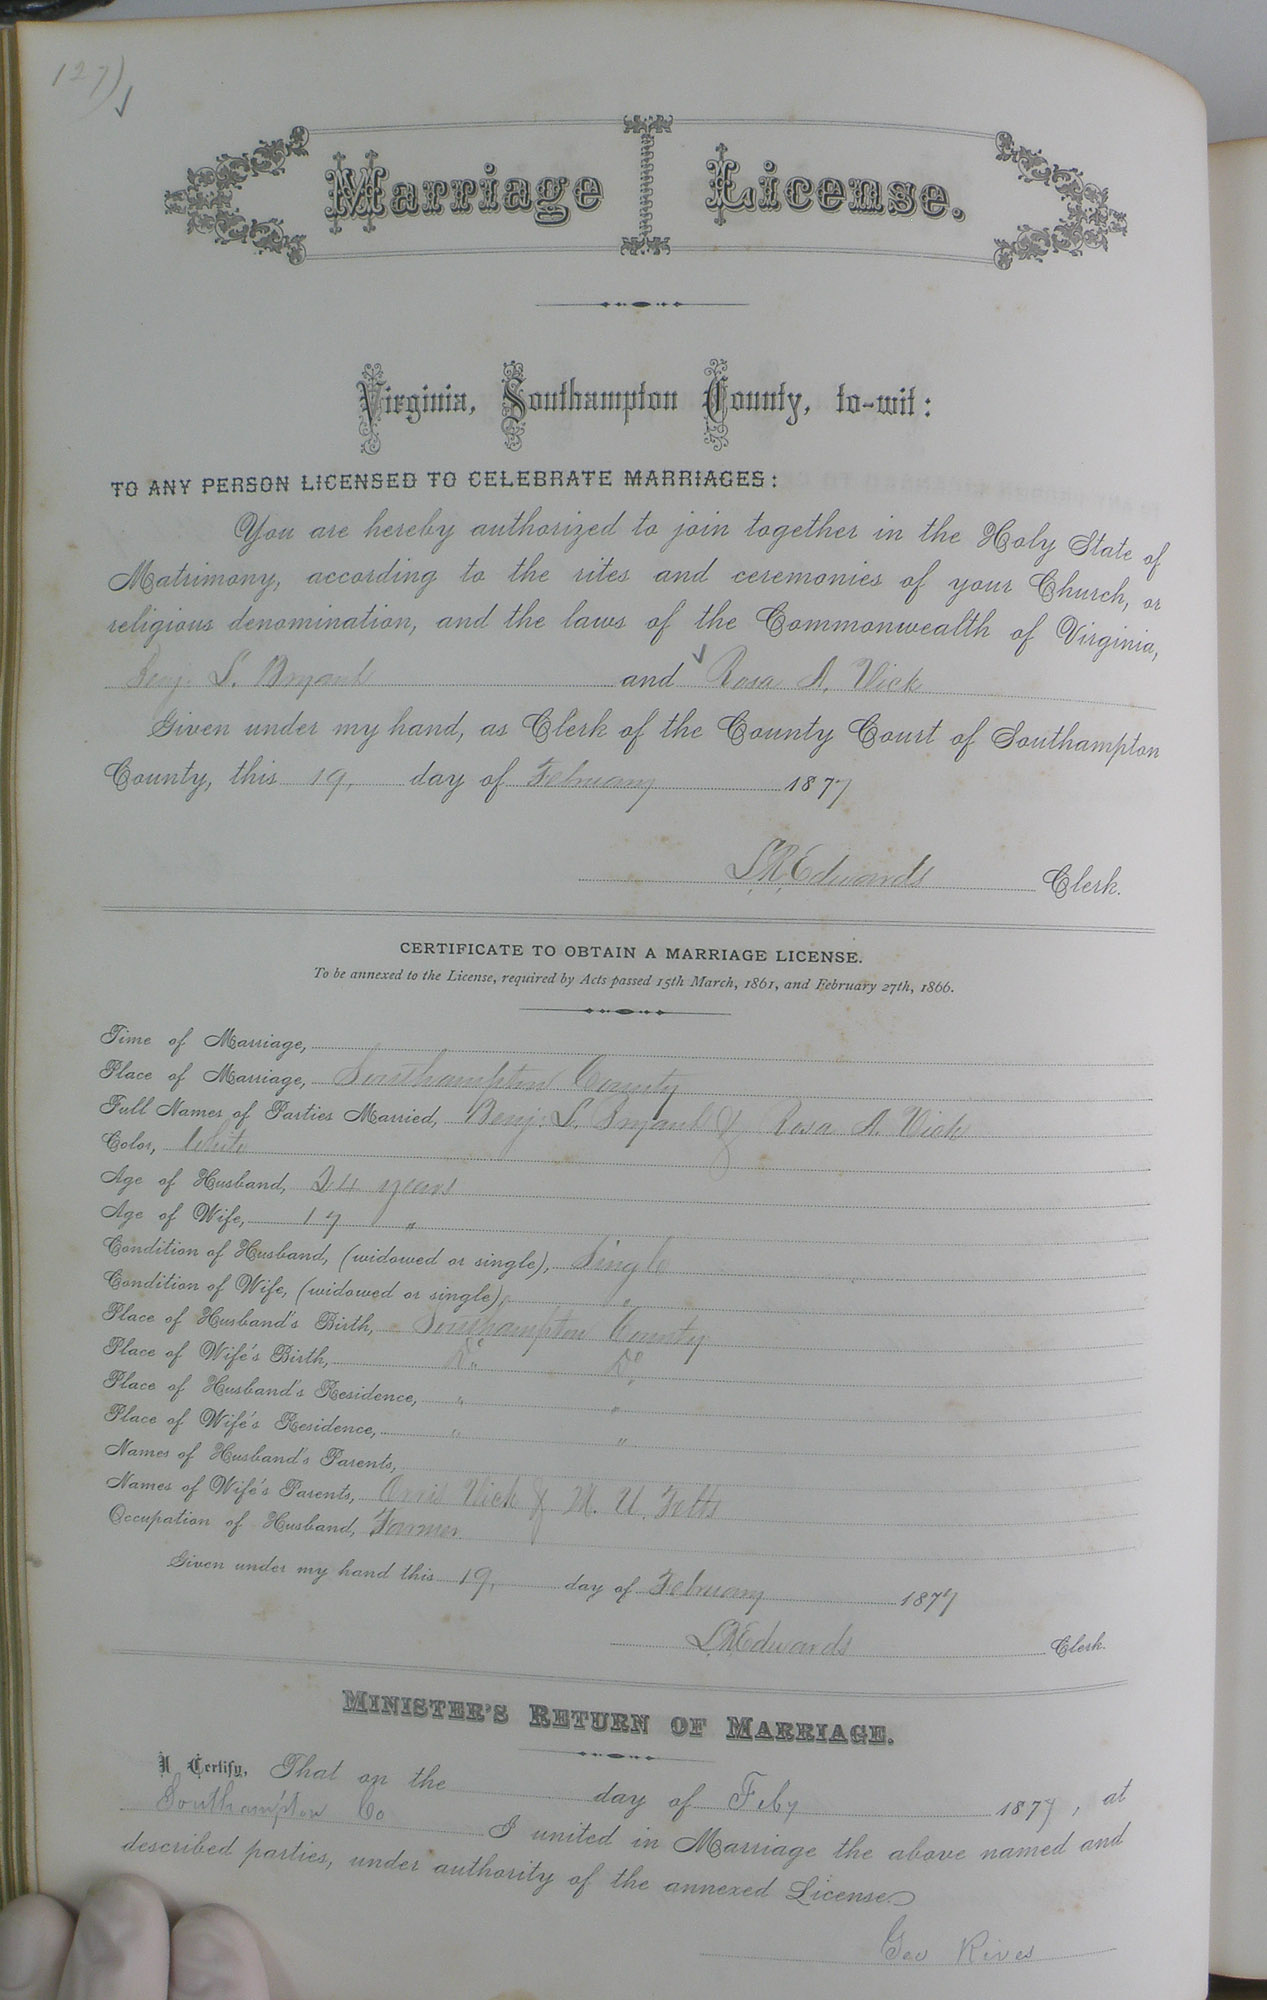 127)
Marriage License.
Virginia, Southampton County, to-wit:
TO ANY PERSON LICENSED TO CELEBRATE MARRIAGES:
You are hereby authorized to join together in the Holy State of
Matrimony, according to the rites and ceremonies of your Church, or
religious denomination, and the laws of the Commonwealth of Virginia,
Benj. S. Bryant and Rosa A. Vick
Given under my hand, as Clerk of the County Court of Southampton
County, this 19, day of February 1877
L.R. Edwards Clerk.
CERTIFICATE TO OBTAIN A MARRIAGE LICENSE.
To be annexed to the License, required by Acts passed 15th March, 1861, and February 27th, 1866.
Time of Marriage,
Place of Marriage, Southampton County
Full Names of Parties Married, Benj. S. Bryant & Rosa A. Vick
Color, White
Age of Husband, 24 years
Age of Wife, 17 "
Condition of Husband, (widowed or single), Single
Condition of Wife, (widowed or single), "
Place of Husband's Birth, Southampton County
Place of Wife's Birth, Do Do
Place of Husband's Residence, " "
Place of Wife's Residence, " "
Names of Husband's Parents,
Names of Wife's Parents, Orris Vick & M. U. Felts
Occupation of Husband, Farmer
Given under my hand this 19, day of February 1877
L.R. Edwards Clerk.
MINISTER'S RETURN OF MARRIAGE.
I Certify, That on the day of Feby 1877, at
Southampton Co I united in Marriage the above named and
described parties, under authority of the annexed License.
Geo Rives